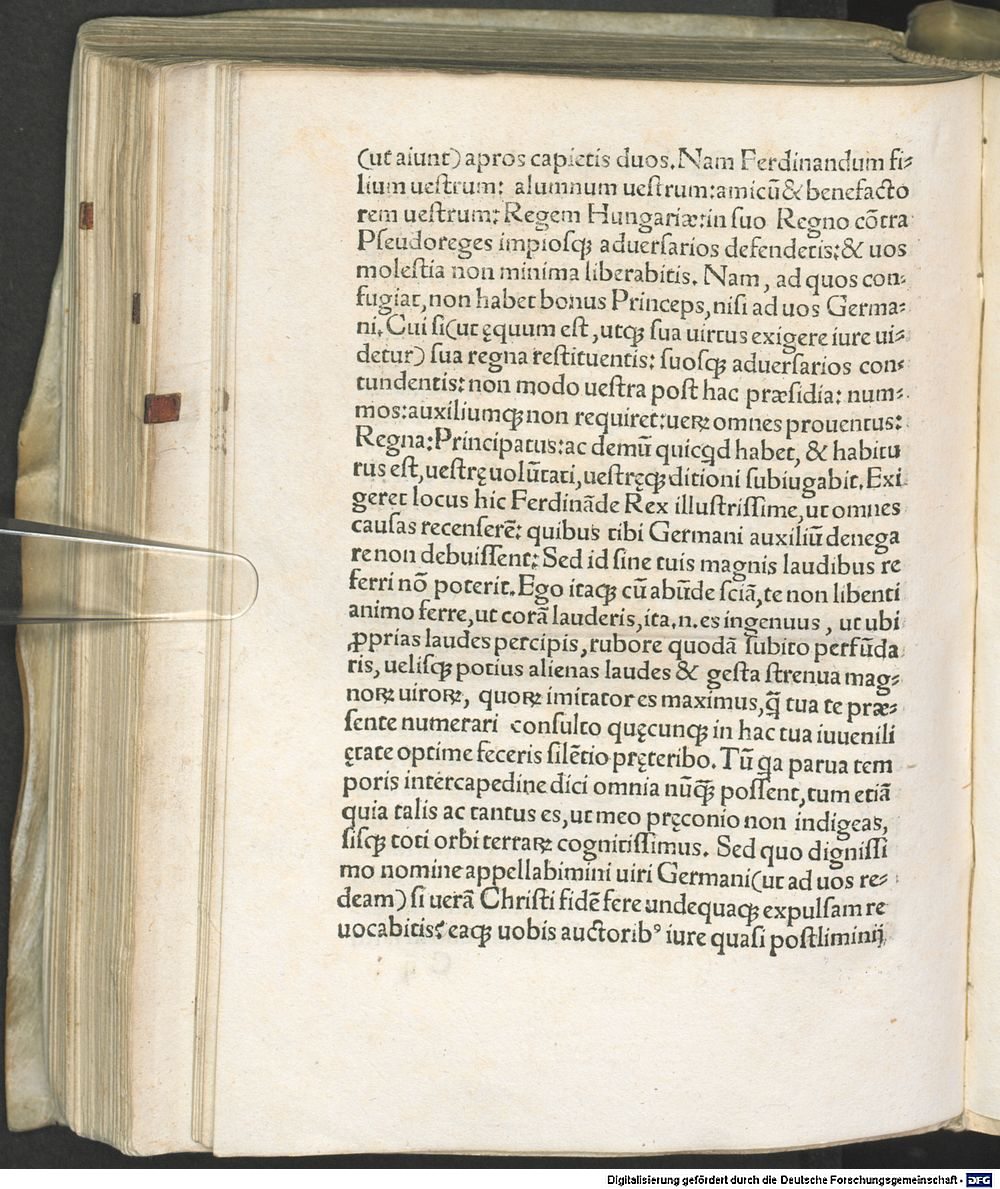 (ut aiunt) apros capietis duos. Nam Ferdinandum fi⸗
lium uestrum: alumnum uestrum: amicū & benefacto
rem uestrum: Regem Hungariæ: in suo Regno cōtra
Pseudoreges impiosqꝫ aduersarios defendetis: & uos
molestia non minima liberabitis. Nam, ad quos con⸗
fugiat, non habet bonus Princeps, nisi ad uos Germa⸗
ni. Cui si (ut ęquum est, utqꝫ sua uirtus exigere iure ui⸗
detur) sua regna restituentis: suosqꝫ aduersarios con⸗
tundentis: non modo uestra post hac præsidia: num⸗
mos: auxiliumqꝫ non requiret: ueꝝ omnes prouentus:
Regna: Principatus: ac demū quicꝗd habet, & habitu
rus est, uestrę uolūtati, uestręqꝫ ditioni subiugabit. Exi
geret locus hic Ferdinãde Rex illustrissime, ut omnes
causas recenserē: quibus tibi Germani auxiliū denega
re non debuissent: Sed id sine tuis magnis laudibus re
ferri nō poterit. Ego itaqꝫ cū abūde sciã, te non libenti
animo ferre, ut corã lauderis, ita .n. es ingenuus, ut ubi
ꝓprias laudes percipis, rubore quodã subito perfūda
ris, uelisqꝫ potius alienas laudes & gesta strenua mag⸗
noꝝ uiroꝝ, quoꝝ imitator es maximus, q̃ tua te præ⸗
sente numerari consulto quęcunqꝫ in hac tua iuuenili
ętate optime feceris silētio pręteribo. Tū ꝗa parua tem
poris intercapedine dici omnia nūqꝫ̃ possent, tum etiã
quia talis ac tantus es, ut meo pręconio non indigeas,
sisqꝫ toti orbi terraꝝ cognitissimus. Sed quo dignissi
mo nomine appellabimini uiri Germani (ut ad uos re⸗
deam) si uerã Christi fidē fere undequaqꝫ expulsam re
uocabitis? eaqꝫ uobis auctoribꝰ iure quasi postliminij
Digitalisierung gefördert durch die Deutsche Forschungsgemeinschaft - DFG